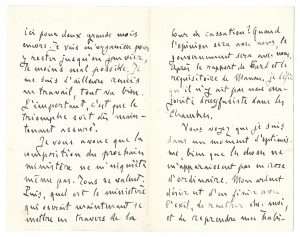 ici pour deux grands mois
encore. Je vais m'organiser pour
y rester jusqu'en janvier,
le moins mal possible. Je
me suis d'ailleurs remis
au travail, tout va bien.
L'important, c'est que le
triomphe soit dès main-
tenant assuré.
Je vous avoue que la
composition du prochain
ministère ne m'inquiète
même pas. Tous se valent.
Puis, quel est le ministère
qui oserait maintenant se
mettre en travers de la
Cour de cassation? Quand
l'opinion sera avec nous, le
gouvernement sera avec nous.
Après le rapport de Bard et le
réquisitoire de Manau, je défie
qu'il n'y ait pas une ma-
jorité dreyfusiste dans les
Chambres.
Vous voyez que je suis
dans un moment d'optimis-
me, bien que les choses ne
m'apparaissent pas en rose
d'ordinaire. Mon violent
désir est d'en finir avec
l'exil, de rentrer chez moi
et de reprendre mes habi-